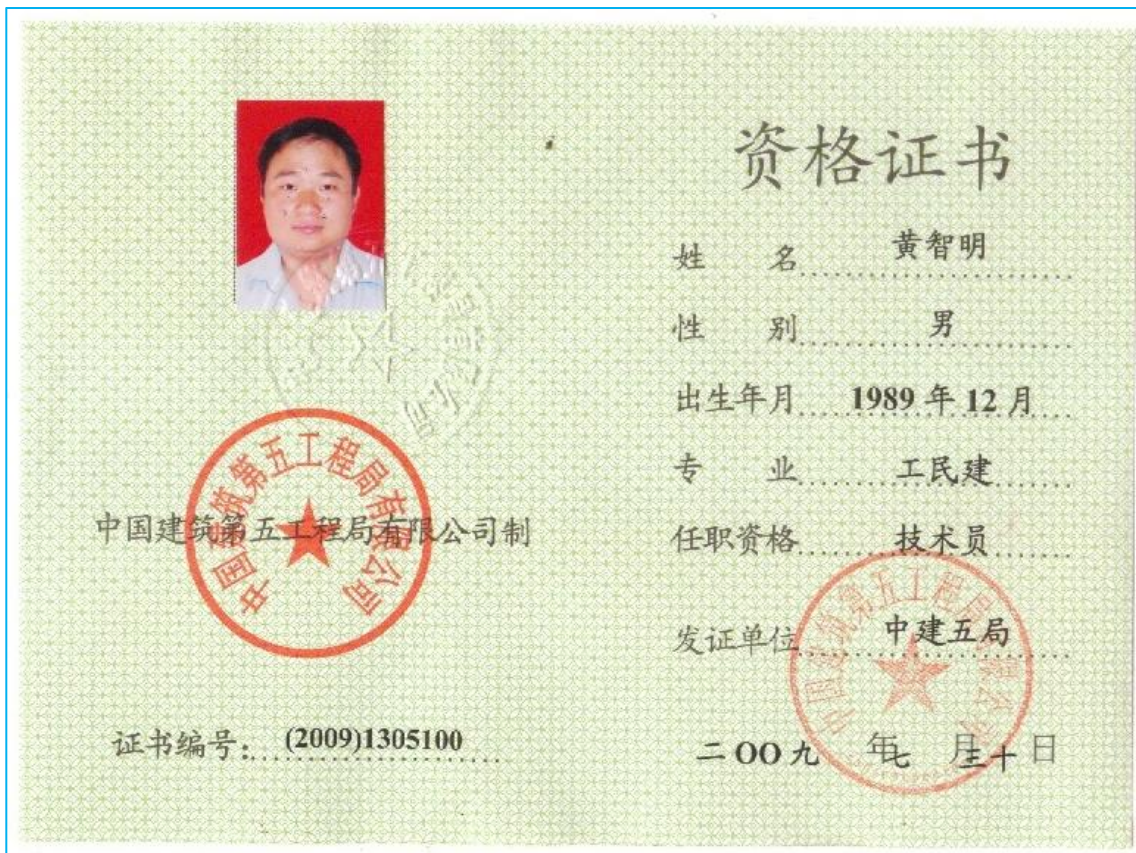 中国建筑第五工程局有限公司
中国建筑第五工程局有限公司制
证书编号：(2009)1305100
资格证书
姓 名 黄智明
性 别 男
出生年月 1989年12月
专 业 工民建
任职资格 技术员
发证单位 中建五局
中国建筑第五工程局有限公司
二OO九 年七 月三十 日